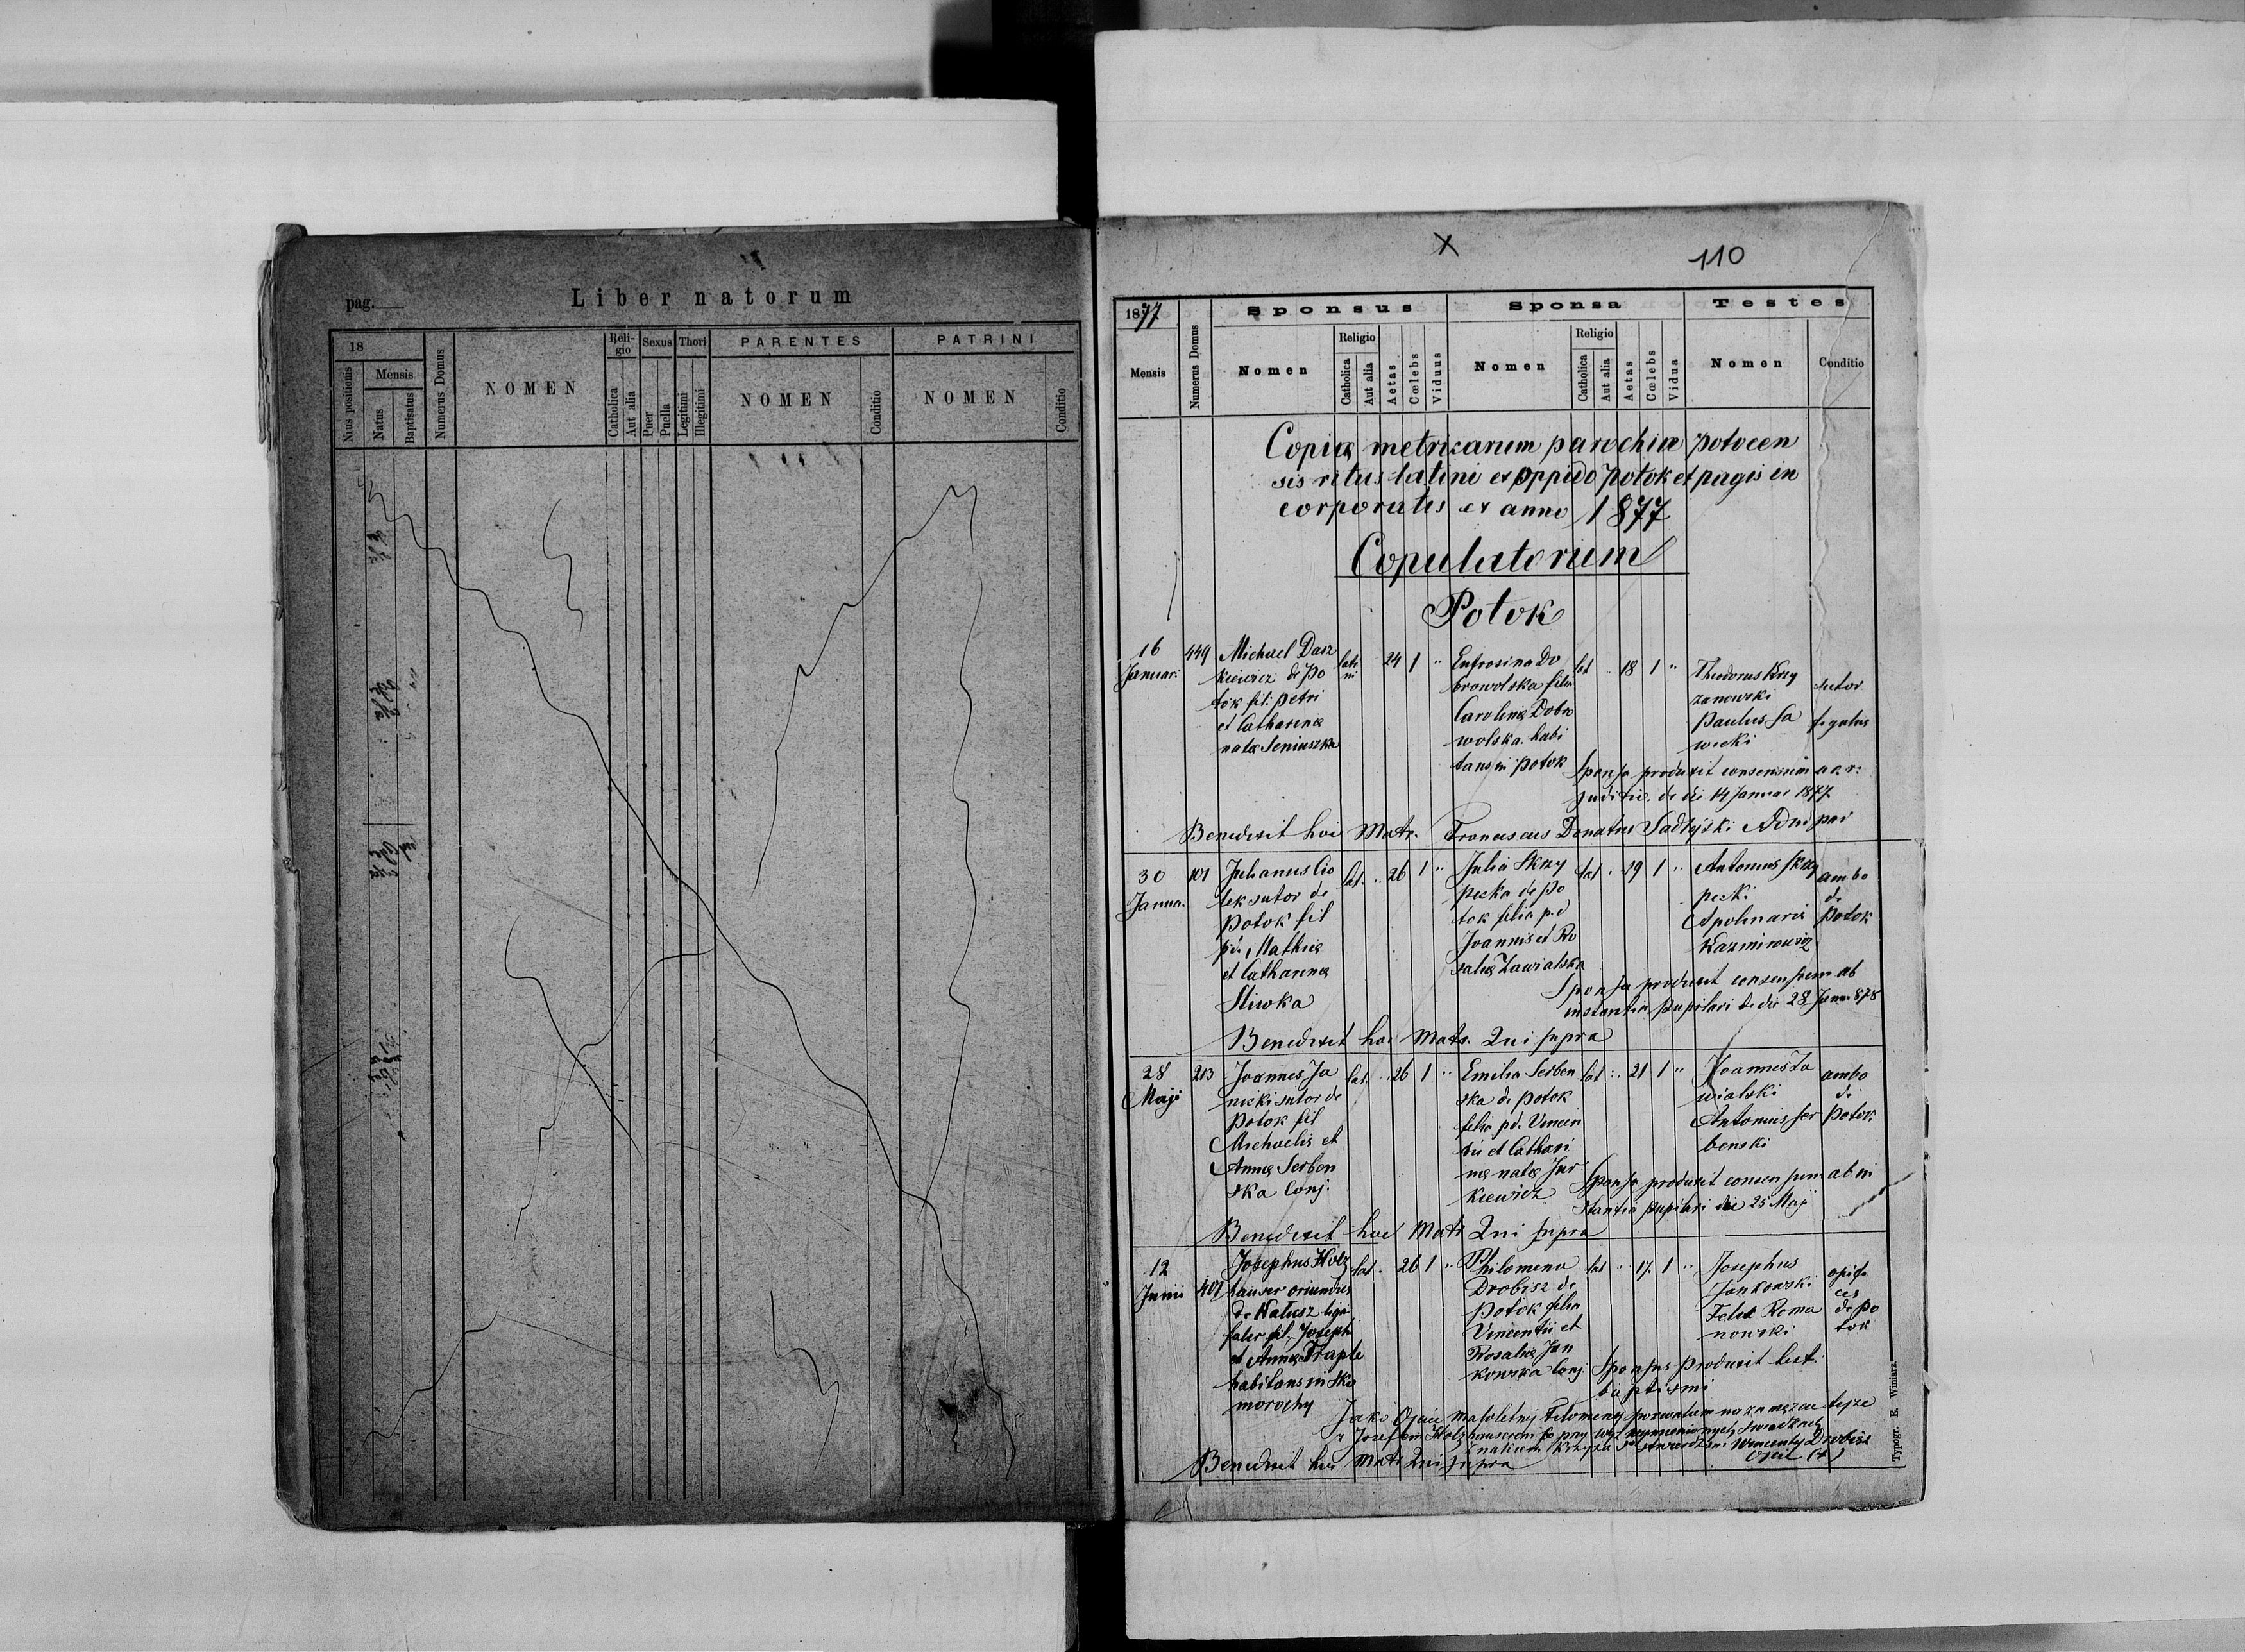 pag.
Liber natorum
18
Mensis
Nrus positionis
Natus
Baptisatus
Numerus Domus
NOMEN
Religio
Catholica
Aut alia
Sexus
Puer
Puella
Thori
Legitimi
Illegitimi
PARENTES
NOMEN
Conditio
PATRINI
NOMEN
Conditio
X
110
1877
Mensis
Numerus Domus
Sponsus
Nomen
Religio
Catholica
Aut alia
Aetas
Cœlebs
Viduus
Sponsa
Nomen
Religio
Catholica
Aut alia
Aetas
Cœlebs
Vidua
Testes
Nomen
Conditio
Copia metricarum parochiæ potocen
sis ritus latini ex oppido Potok et pagis in
corporatis ex anno 1877
Copulatorum
Potok
16
Januari
449
Michael Dasz
kiewicz de Po
tok fil: Petri
et Catharinæ
natæ Seniuszka
lati
ni
24 1 "
Eufrosina Do
browolska filia
Carolinæ Dobro
wolska habi
tans in Potok
lat " 18 1 "
Theodorus Krzy
zanowski
Paulus Sa
wicki
sutor
figulus
Sponsa produxit consensum
judic. de die 14 Januar 1877
Benedixit hoc Matr. Franciscus Donatus Sadłyski Adm par
30
Janua.
101
Julianus Cio
tek sutor de
Potok fil
pd. Mathiæ
et Catharinæ
Sliwka
lat. " 26 1 "
Julia Skrzy
pecka de Po
tok filia p.d
Joannis et Ro
saliæ Zawialska
lat " 19 1 "
Antonius Skrzy
pecki
Apolinaris
Kazmirowicz
ambo
de
Potok
Sponsa produxit consensum ab
instantia pupilari de die 28 Janu 878
Benedixit hoc Matr. Qui supra
28
Maji
213
Joannes Ja
nicki sutor de
Potok fil
Michaelis et
Annæ Serben
ska Conj.
lat. " 26 1 "
Emilia Serben
ska de Potok
filia pd. Vincen
tii et Cathari
næ natæ Jur
kiewicz
lat " 21 1 "
Joannes Za
wialski
Antonius Ser
benski
ambo
de
Potok
Sponsa produxit consensum ab in
stantia pupilari die 25 Maji
Benedixit hoc Matr Qui supra
12
Junii
401
Josephus Holz
hauser oriundus
de Kalusz ligni
faber fil. Josephi
et Annæ Traple
habitans in Sko
morochy
lat. " 26 1 "
Philomena
Drobisz de
Potok filia
Vincentii et
Rosaliæ Jan
kowska Conj.
lat " 17 1 "
Josephus
Jankowski
Felix Roma
nowski
opifi
ces
de Po
tok
Sponsus produxit test.
baptismi
Jako Ojciec małoletniej Filomeny pozwalam na zamęzcie tejze
z Josefem Holzhauserem co przy wyz wymienionych swiadkach
znakiem krzyza stwierdzam Wincenty Drobisz
Ojciec (+)
Benedixit hoc Matr Qui supra
Typogr. E. Winiarz.